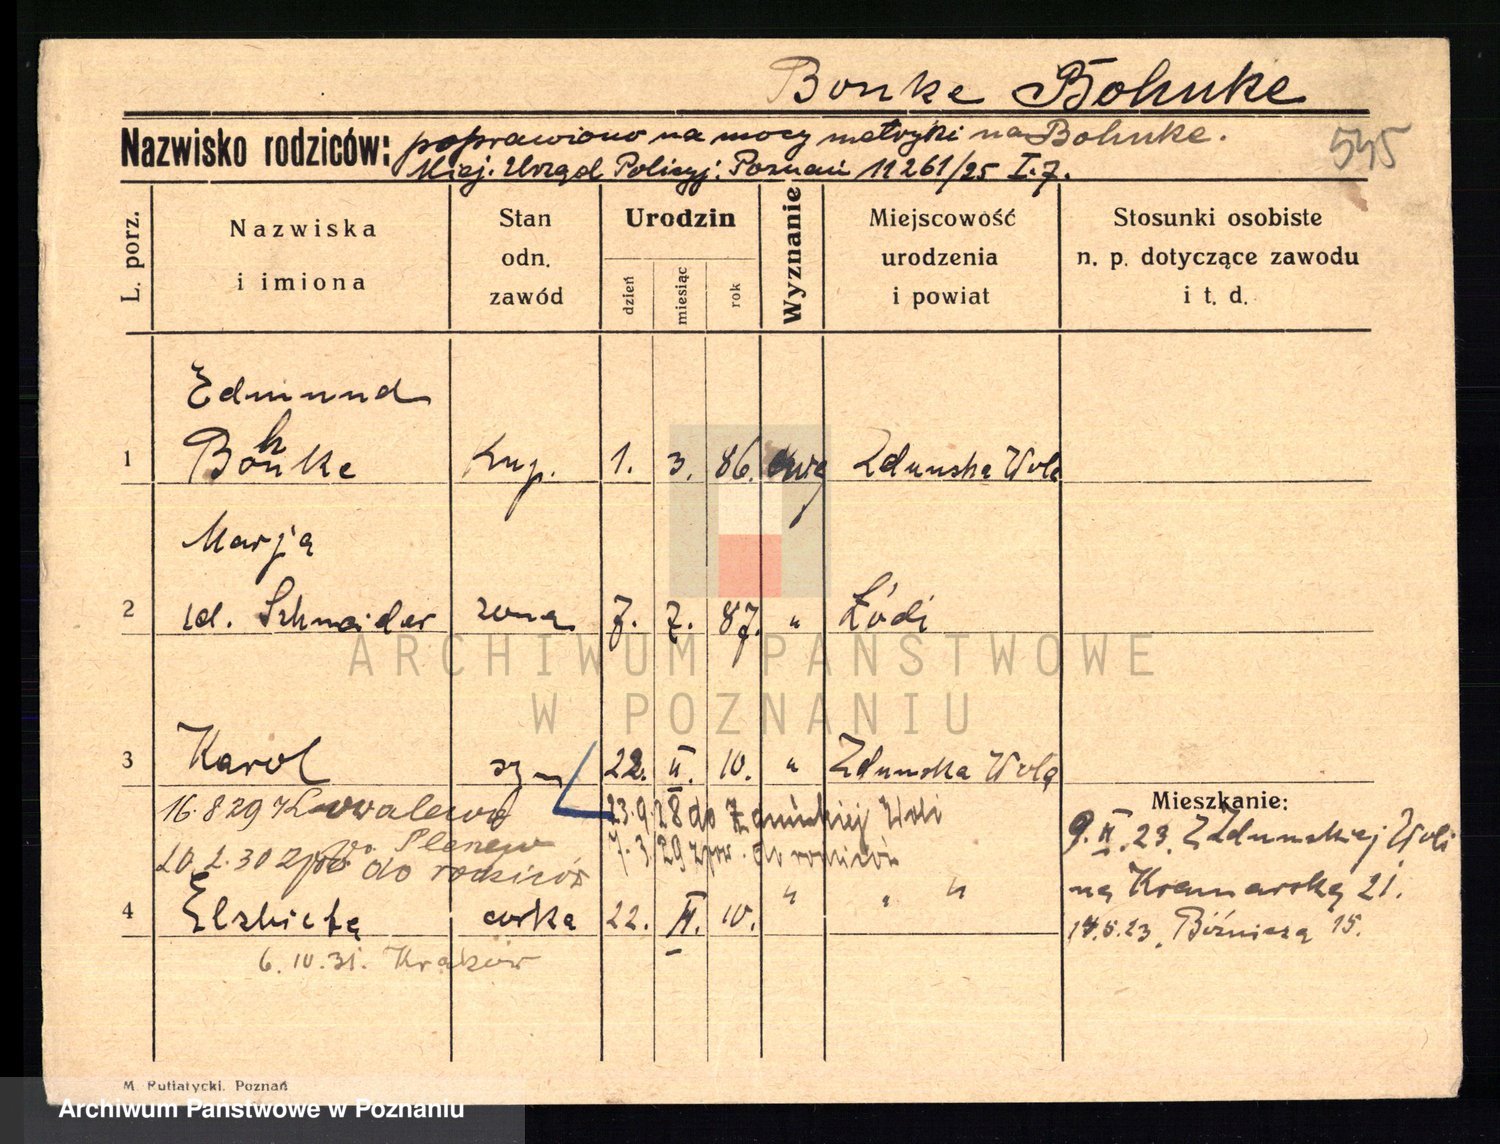 Bonke Bohnke
Nazwisko rodziców: poprawiono na mocy metryki na Bohnke.
Miej. Urząd Policyj. Poznań 11261/25 I.7.
545
L. porz.
Nazwiska
i imiona
Stan
odn.
zawód
Urodzin
dzień
miesiąc
rok
Wyznanie
Miejscowość
urodzenia
i powiat
Stosunki osobiste
n. p. dotyczące zawodu
i t. d.
Edmund
1 Bohnke kup. 1. 3. 86. ewg Zduńska Wola
Marja
2 id. Schneider żona 7. 7. 87. " Łódź
3 Karol syn 22. II. 10. " Zduńska Wola
16.8.29
23.9.28 do Zduńskiej Woli
20.2.30 do rodziców
7.3.29 do rodziców
4 Elżbieta córka 22. II. 10. " " "
6.10.31. Kraków
Mieszkanie:
9.II.23. Z Zduńskiej Woli
na Kramarską 21.
Bóźnicza 15.
M. Putiatycki, Poznań
ARCHIWUM PAŃSTWOWE
W POZNANIU
Archiwum Państwowe w Poznaniu